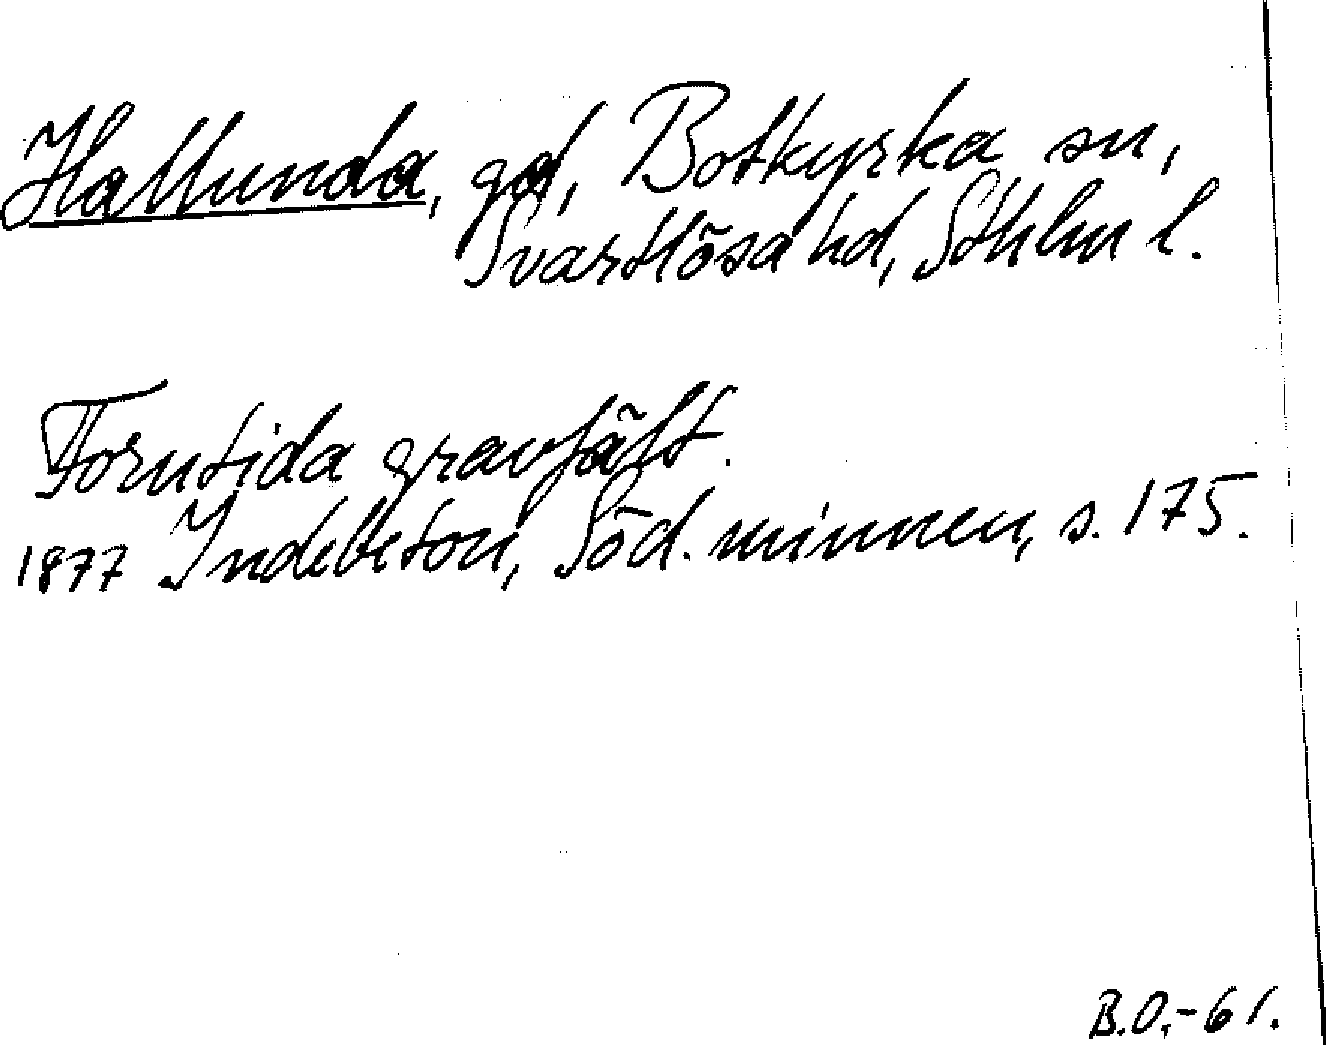 Hallunda, gd, Botkyrka sn,
Svartlösa hd, Sthlm l.
Forntida gravfält.
1877 Indebetou, Söd. minnen, s. 175.
B.O.-61.